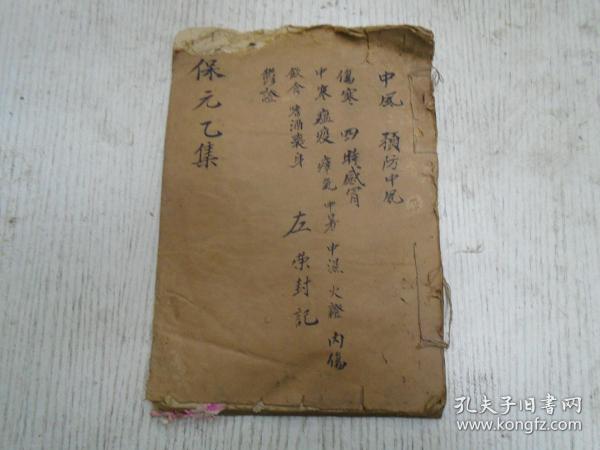 中風 預防中風
傷寒 四時感冒
中寒 瘟疫 瘴氣 中暑 中濕 火證 內傷
飲食 嗜酒喪身
鬱證
左榮封記
保元乙集
孔夫子旧书网
www.kongfz.com